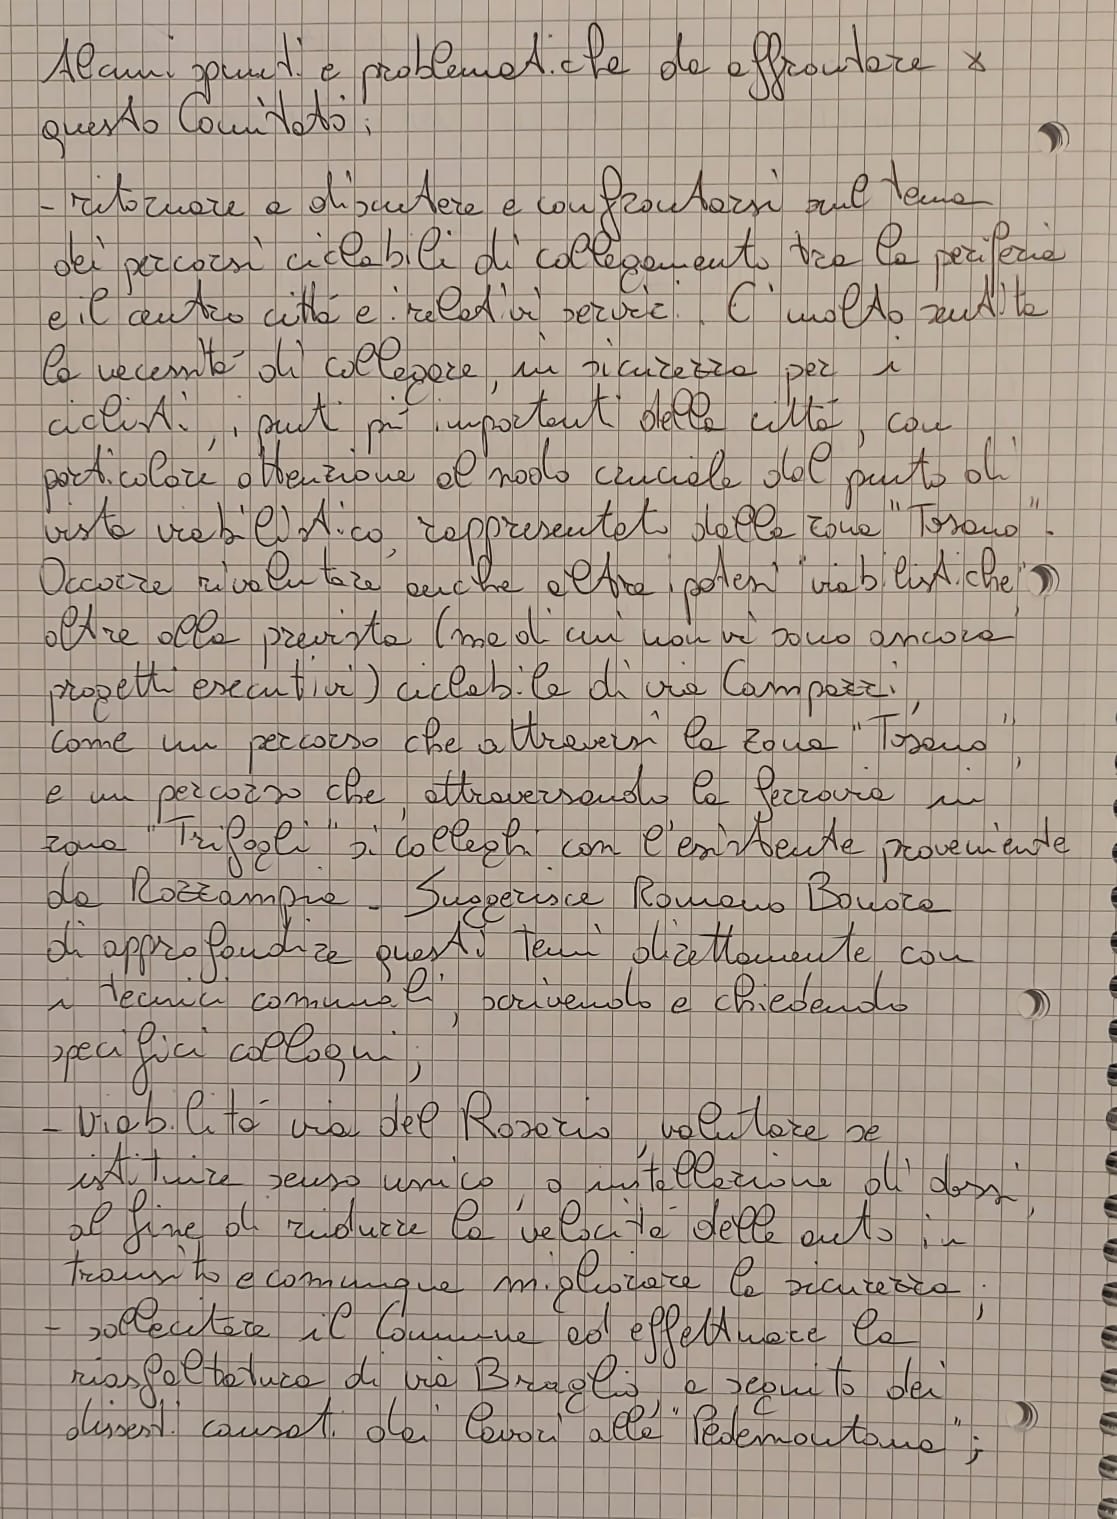 Alcuni spunti e problematiche da affrontare x
questo Comitato:
- ritornare a discutere e confrontarsi sul tema
dei percorsi ciclabili di collegamento tra la periferia
e il centro città e i relativi servizi. E' molto sentita
la necessità di collegare, in sicurezza per i
ciclisti, i punti più importanti della città, con
particolare attenzione al nodo cruciale dal punto di
vista viabilistico, rappresentato dalla zona "Tosano".
Occorre rivalutare anche altre ipotesi viabilistiche
oltre alla prevista (ma di cui non vi sono ancora
progetti esecutivi) ciclabile di via Campazzi,
come un percorso che attraversi la zona "Tosano",
e un percorso che, attraversando la ferrovia in
zona "Trifogli" si colleghi con l'esistente proveniente
da Rozzampia. Suggerisce Romano Bonora
di approfondire questi temi direttamente con
i tecnici comunali, scrivendo e chiedendo
specifici colloqui;
- viabilità via del Rosario, valutare se
istituire senso unico, o installazione di dossi,
al fine di ridurre la velocità delle auto in
transito e comunque migliorare la sicurezza;
- sollecitare il Comune ad effettuare la
riasfaltatura di via Braglio, a seguito dei
dissesti causati dai lavori alla "Pedemontana";